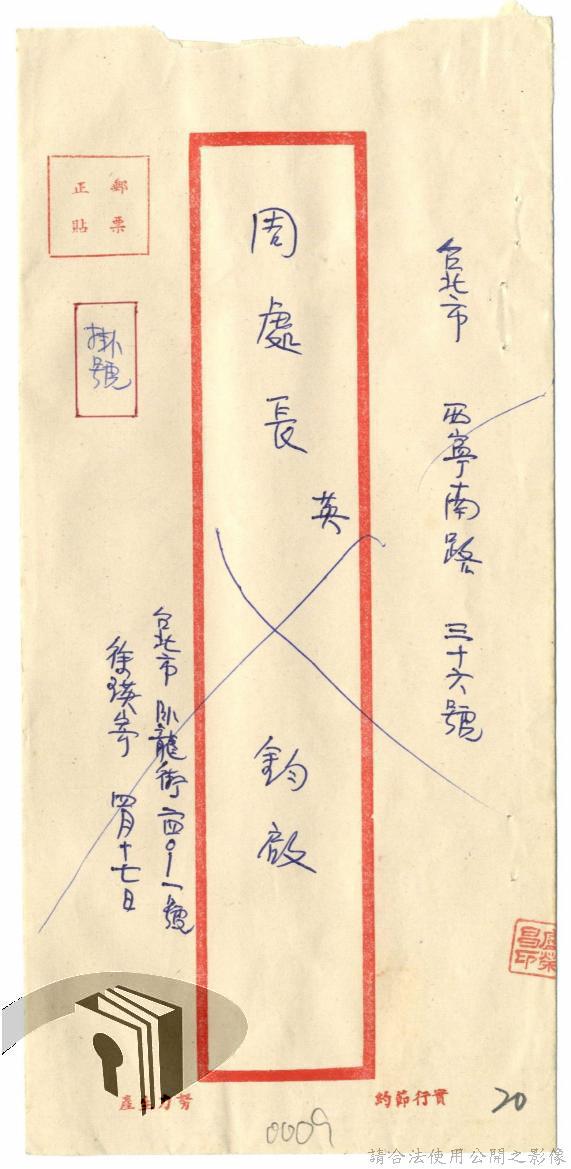 台北市 西寧南路 三十六號
周處長 英 鈞啟
郵票
正貼
掛號
台北市 臥龍街 一四〇-一號
四月十七日
昌印
實行節約
產
20
0009
請合法使用公開之影像